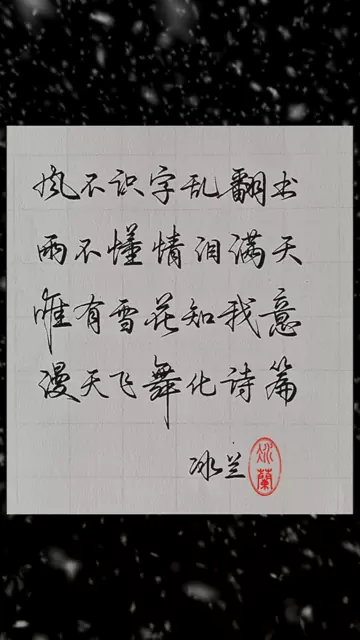 风不识字乱翻书
雨不懂情泪满天
唯有雪花知我意
漫天飞舞化诗篇
冰兰
冰蘭